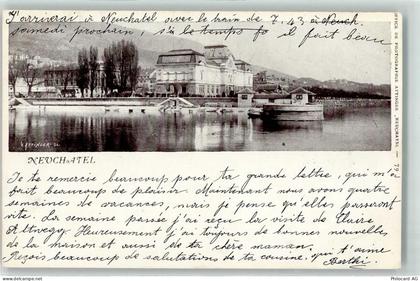 J'arriverai à Neuchatel avec le train de 7.43 à Neuch.
samedi prochain, si le temps fo il fait beau
OFFICE DE PHOTOGRAPHIE ATTINGER, NEUCHATEL
V. ATTINGER
NEUCHATEL
Je te remercie beaucoup pour ta grande lettre, qui m'a
fait beaucoup de plaisir. Maintenant nous avons quatre
semaines de vacances, mais je pense qu'elles passeront
vite. La semaine passée j'ai reçu la visite de Claire
Altwegg. Heureusement j'ai toujours de bonnes nouvelles,
de la maison et aussi de ta chère maman.
Reçois beaucoup de salutations de ta cousine, qui t'aime
Berthi